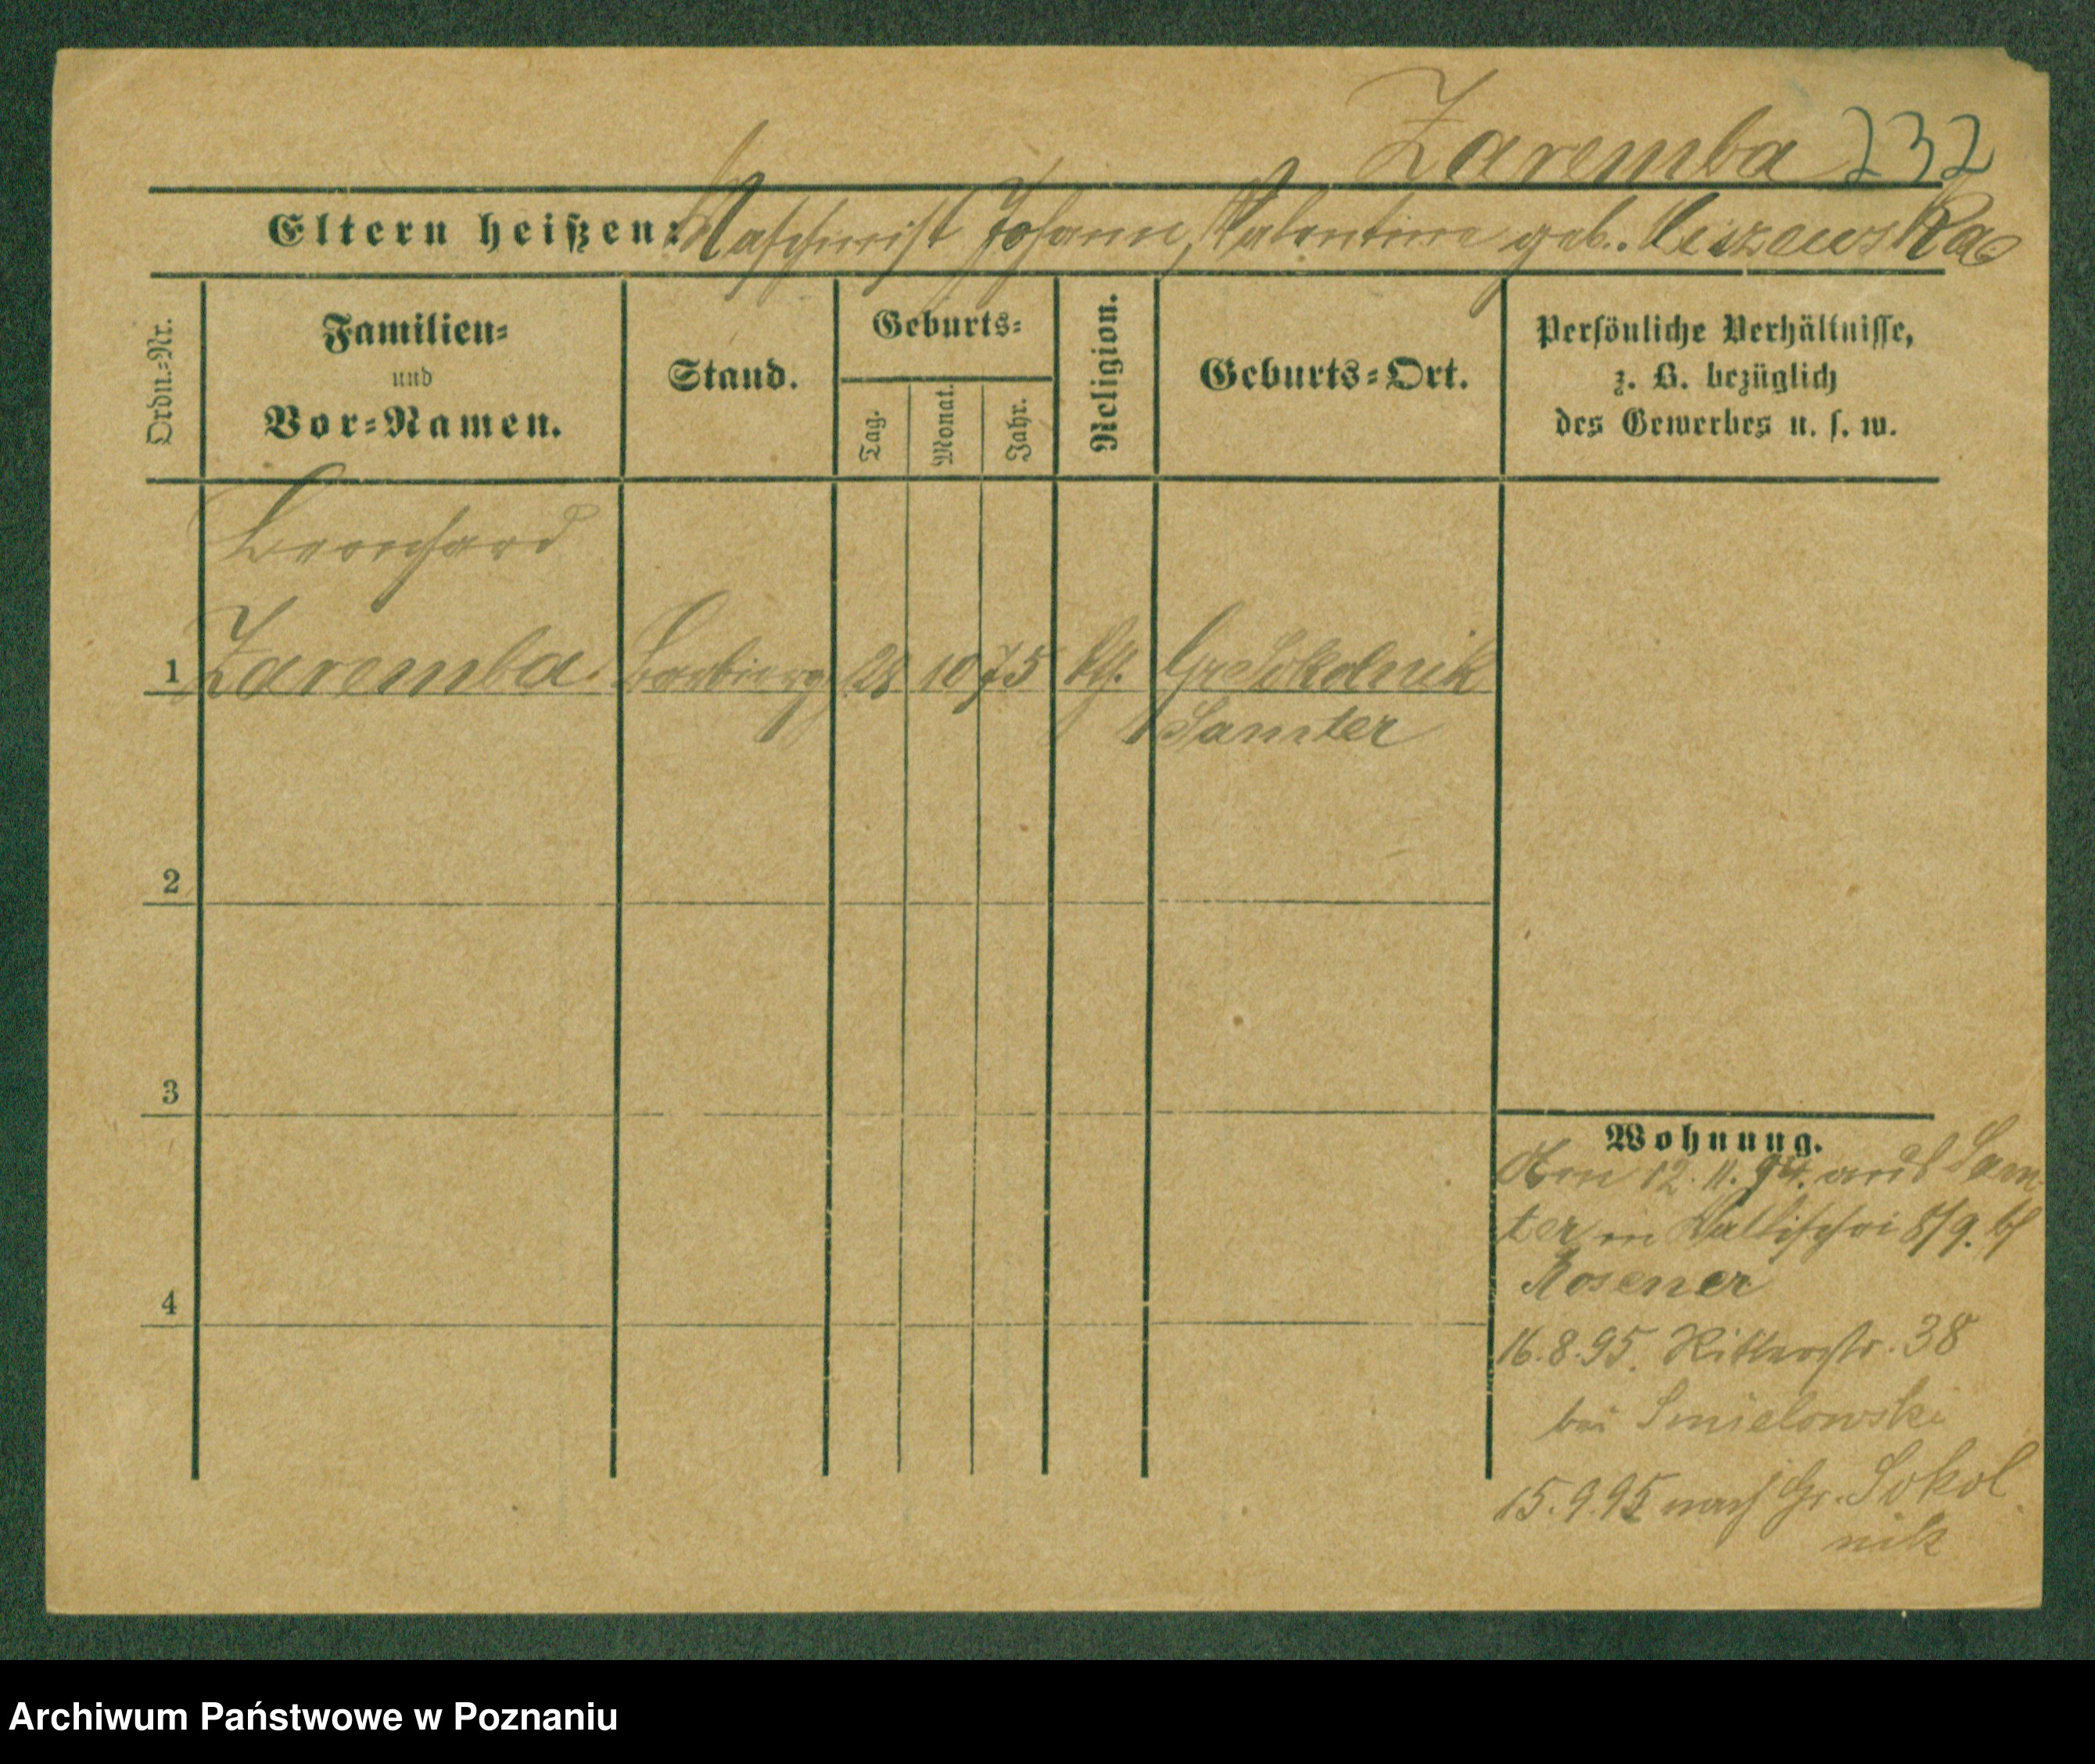 Zaremba 232
Eltern heißen: Maschinist Johann, Valentine geb.
Ordn.-Nr.
Familien-
und
Vor-Namen.
Stand.
Geburts-
Tag.
Monat.
Jahr.
Religion.
Geburts-Ort.
Persönliche Verhältnisse,
z. B. bezüglich
des Gewerbes u. s. w.
Bernhard
1 Zaremba. 28 10 75 kth. Gr Sokolnik
Samter
2
3
4
Wohnung.
12. 11. 94. aus Sam
ter in Wallischei 8/9. bei
Rosener
16.8.95. Ritterstr. 38
bei Smielowski
15.9.95 nach Gr. Sokol
nik
Archiwum Państwowe w Poznaniu